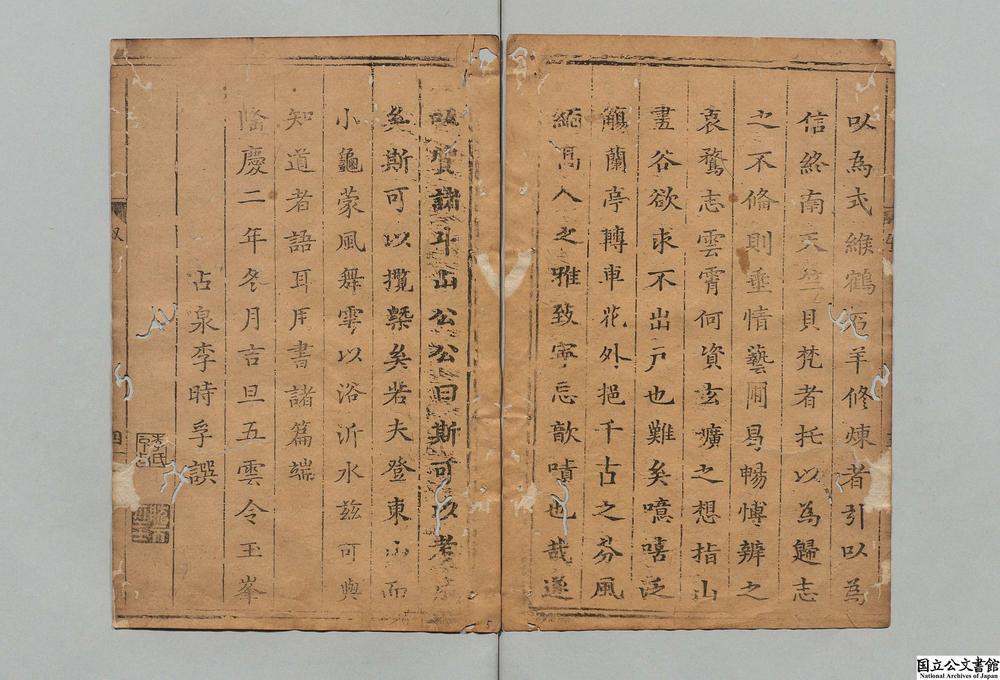 以為式維鶴石羊修煉者引以為
信終南天竺貝梵者托以為歸志
之不脩則垂情藝圃曷暢博辨之
衷騖志雲霄何資玄曠之想指山
畫谷欲求不出戶也難矣噫嘻泛
觴蘭亭轉車花外挹千古之芬風
緬高人之雅致寧忘歆嘖也哉遂
質諸斗山公公曰斯可以考
矣斯可以攬槩矣若夫登東山而
小龜蒙風舞雩以浴沂水玆可與
知道者語耳用書諸篇端
隆慶二年冬月吉旦五雲令玉峯
占泉李時孚譔
四
李氏
国立公文書館
National Archives of Japan